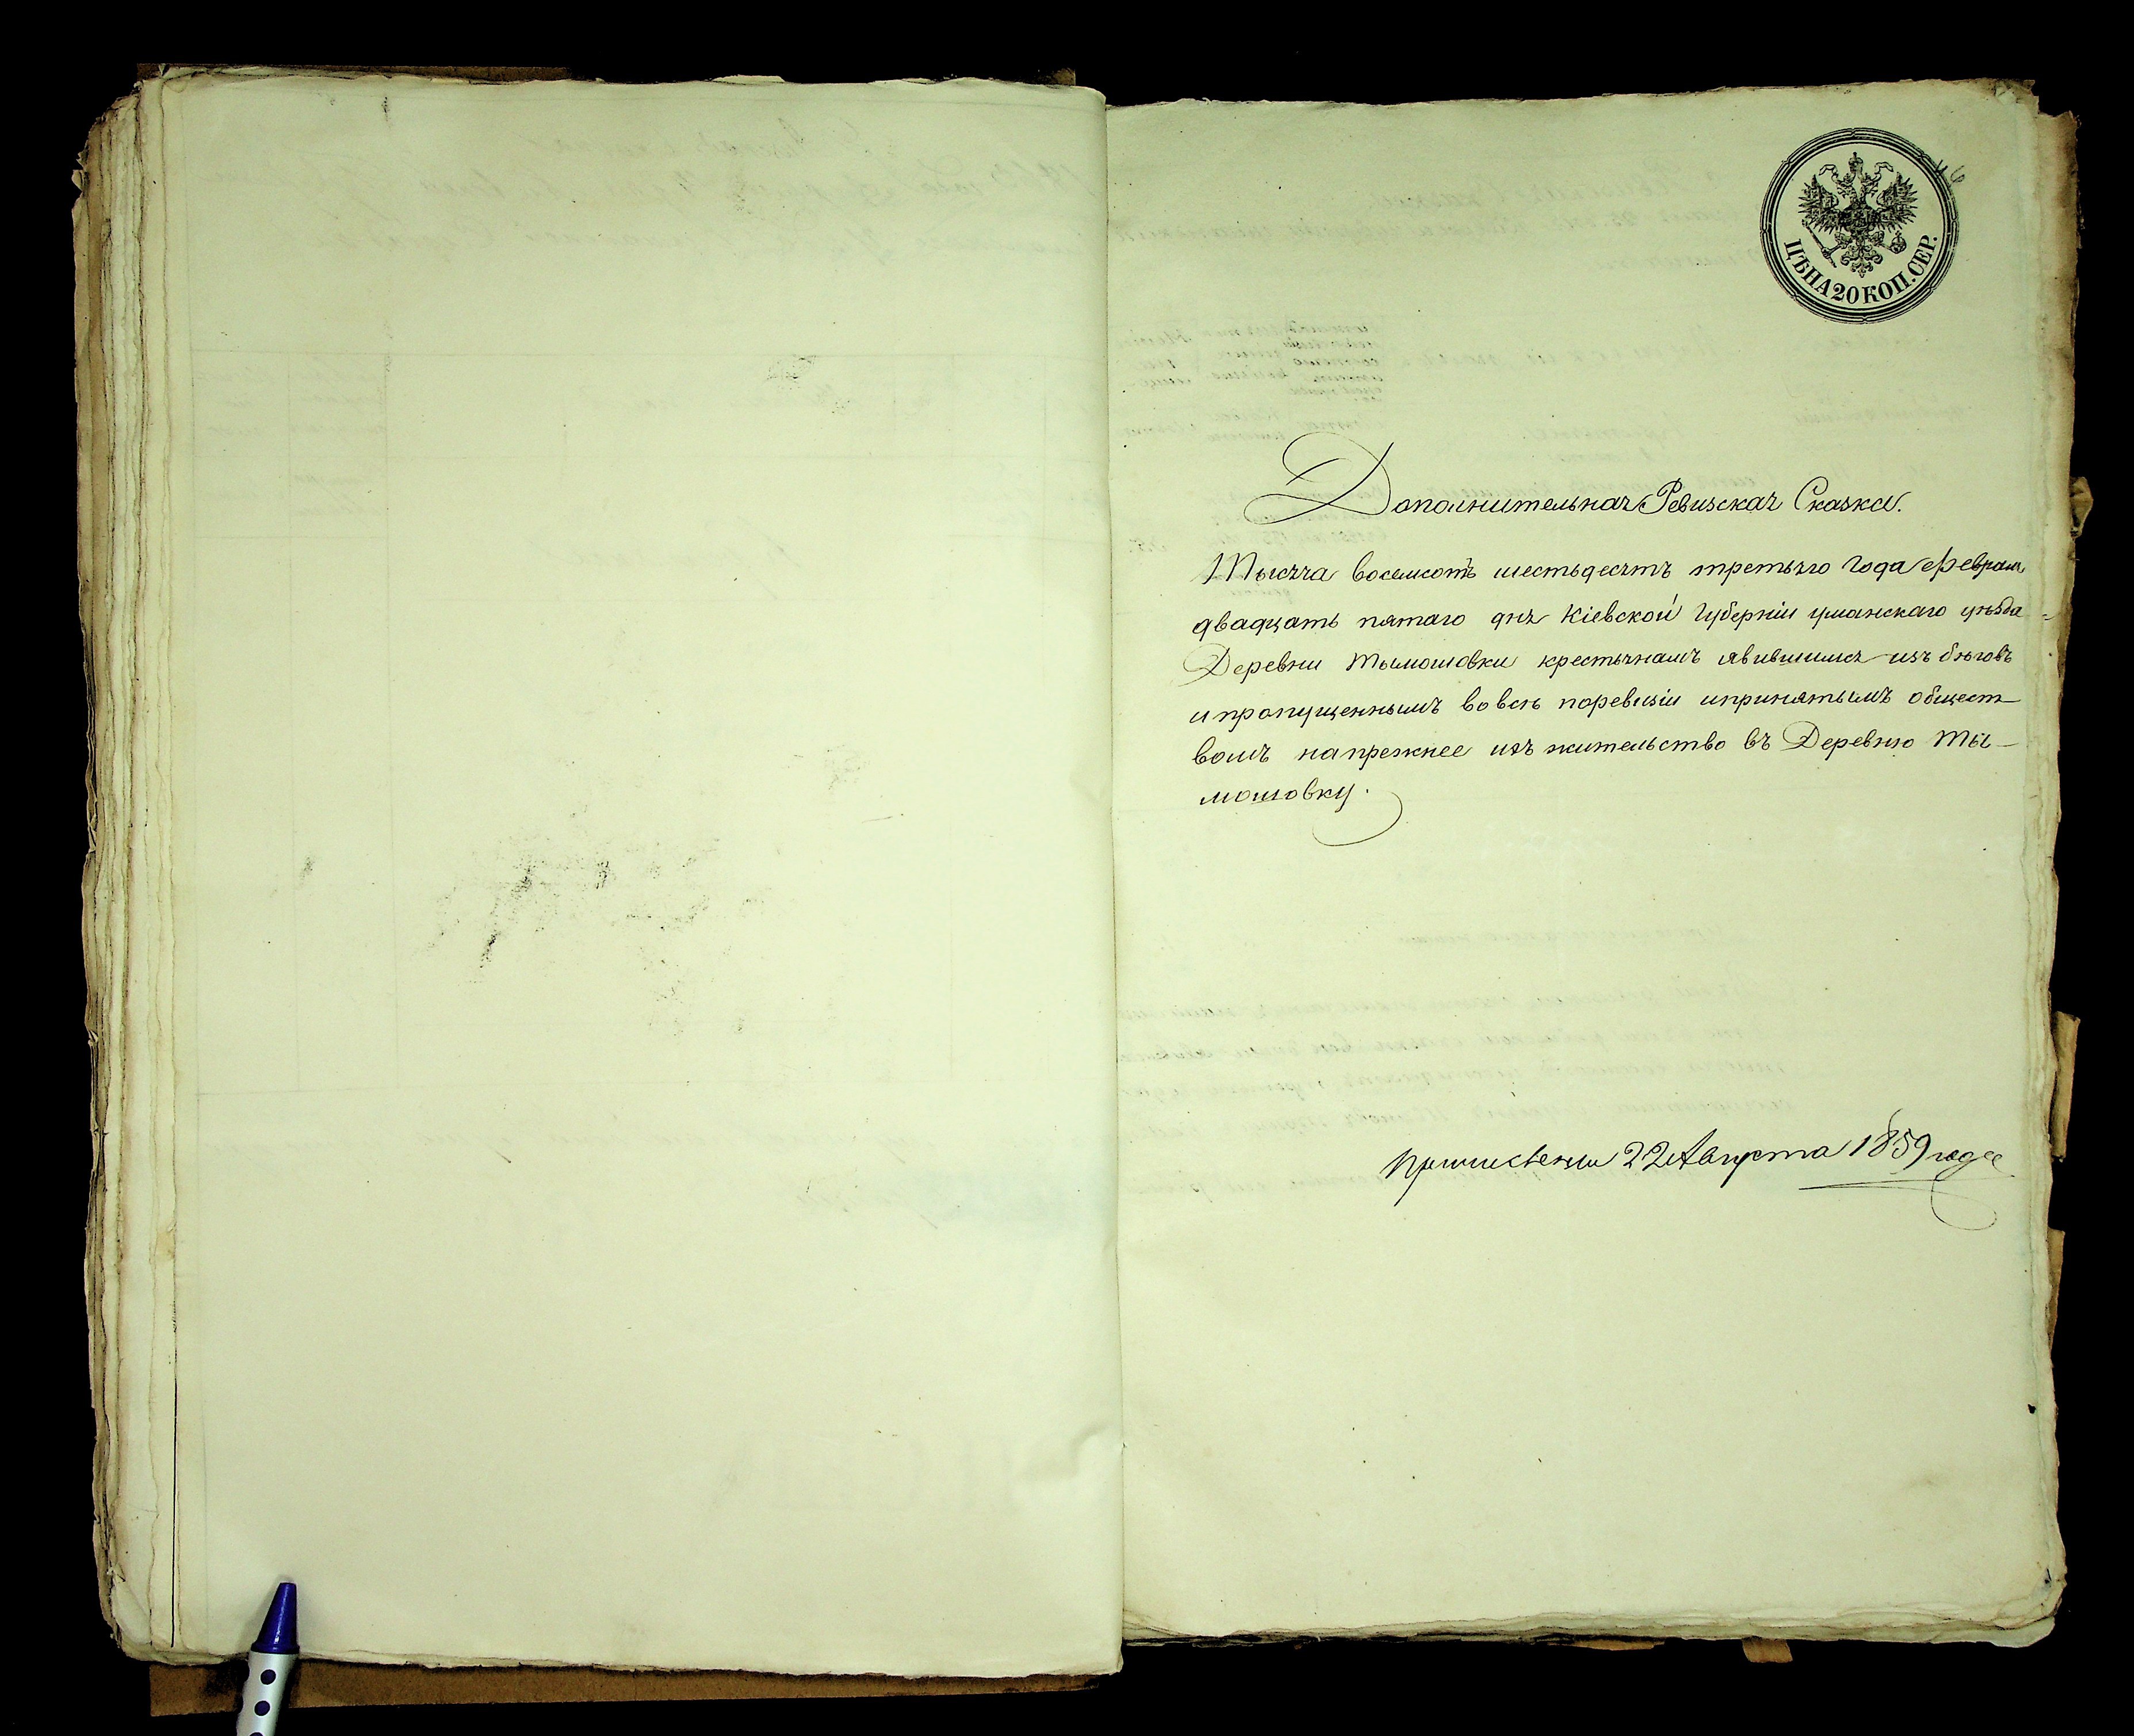 46
ЦѢНА 20 КОП. СЕР.
Дополнительная Ревизская Сказка.
Тысяча восемсотъ шестьдесятъ третьяго года февраля
двадцать пятаго дня Кіевской Губерніи уманскаго уѣзда
Деревни Тымошовки крестьянамъ явившимся изъ бѣговъ
и пропущеннымъ вовсѣ поревизіи ипринятымъ общест-
вомъ напрежнее ихъ жительство въ Деревню Ты-
мошовку.
22 Августа 1859 года